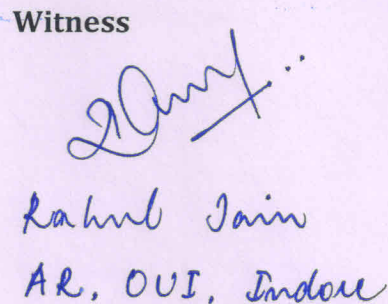 Witness
Rahul Jain
AR, OUI, Indore